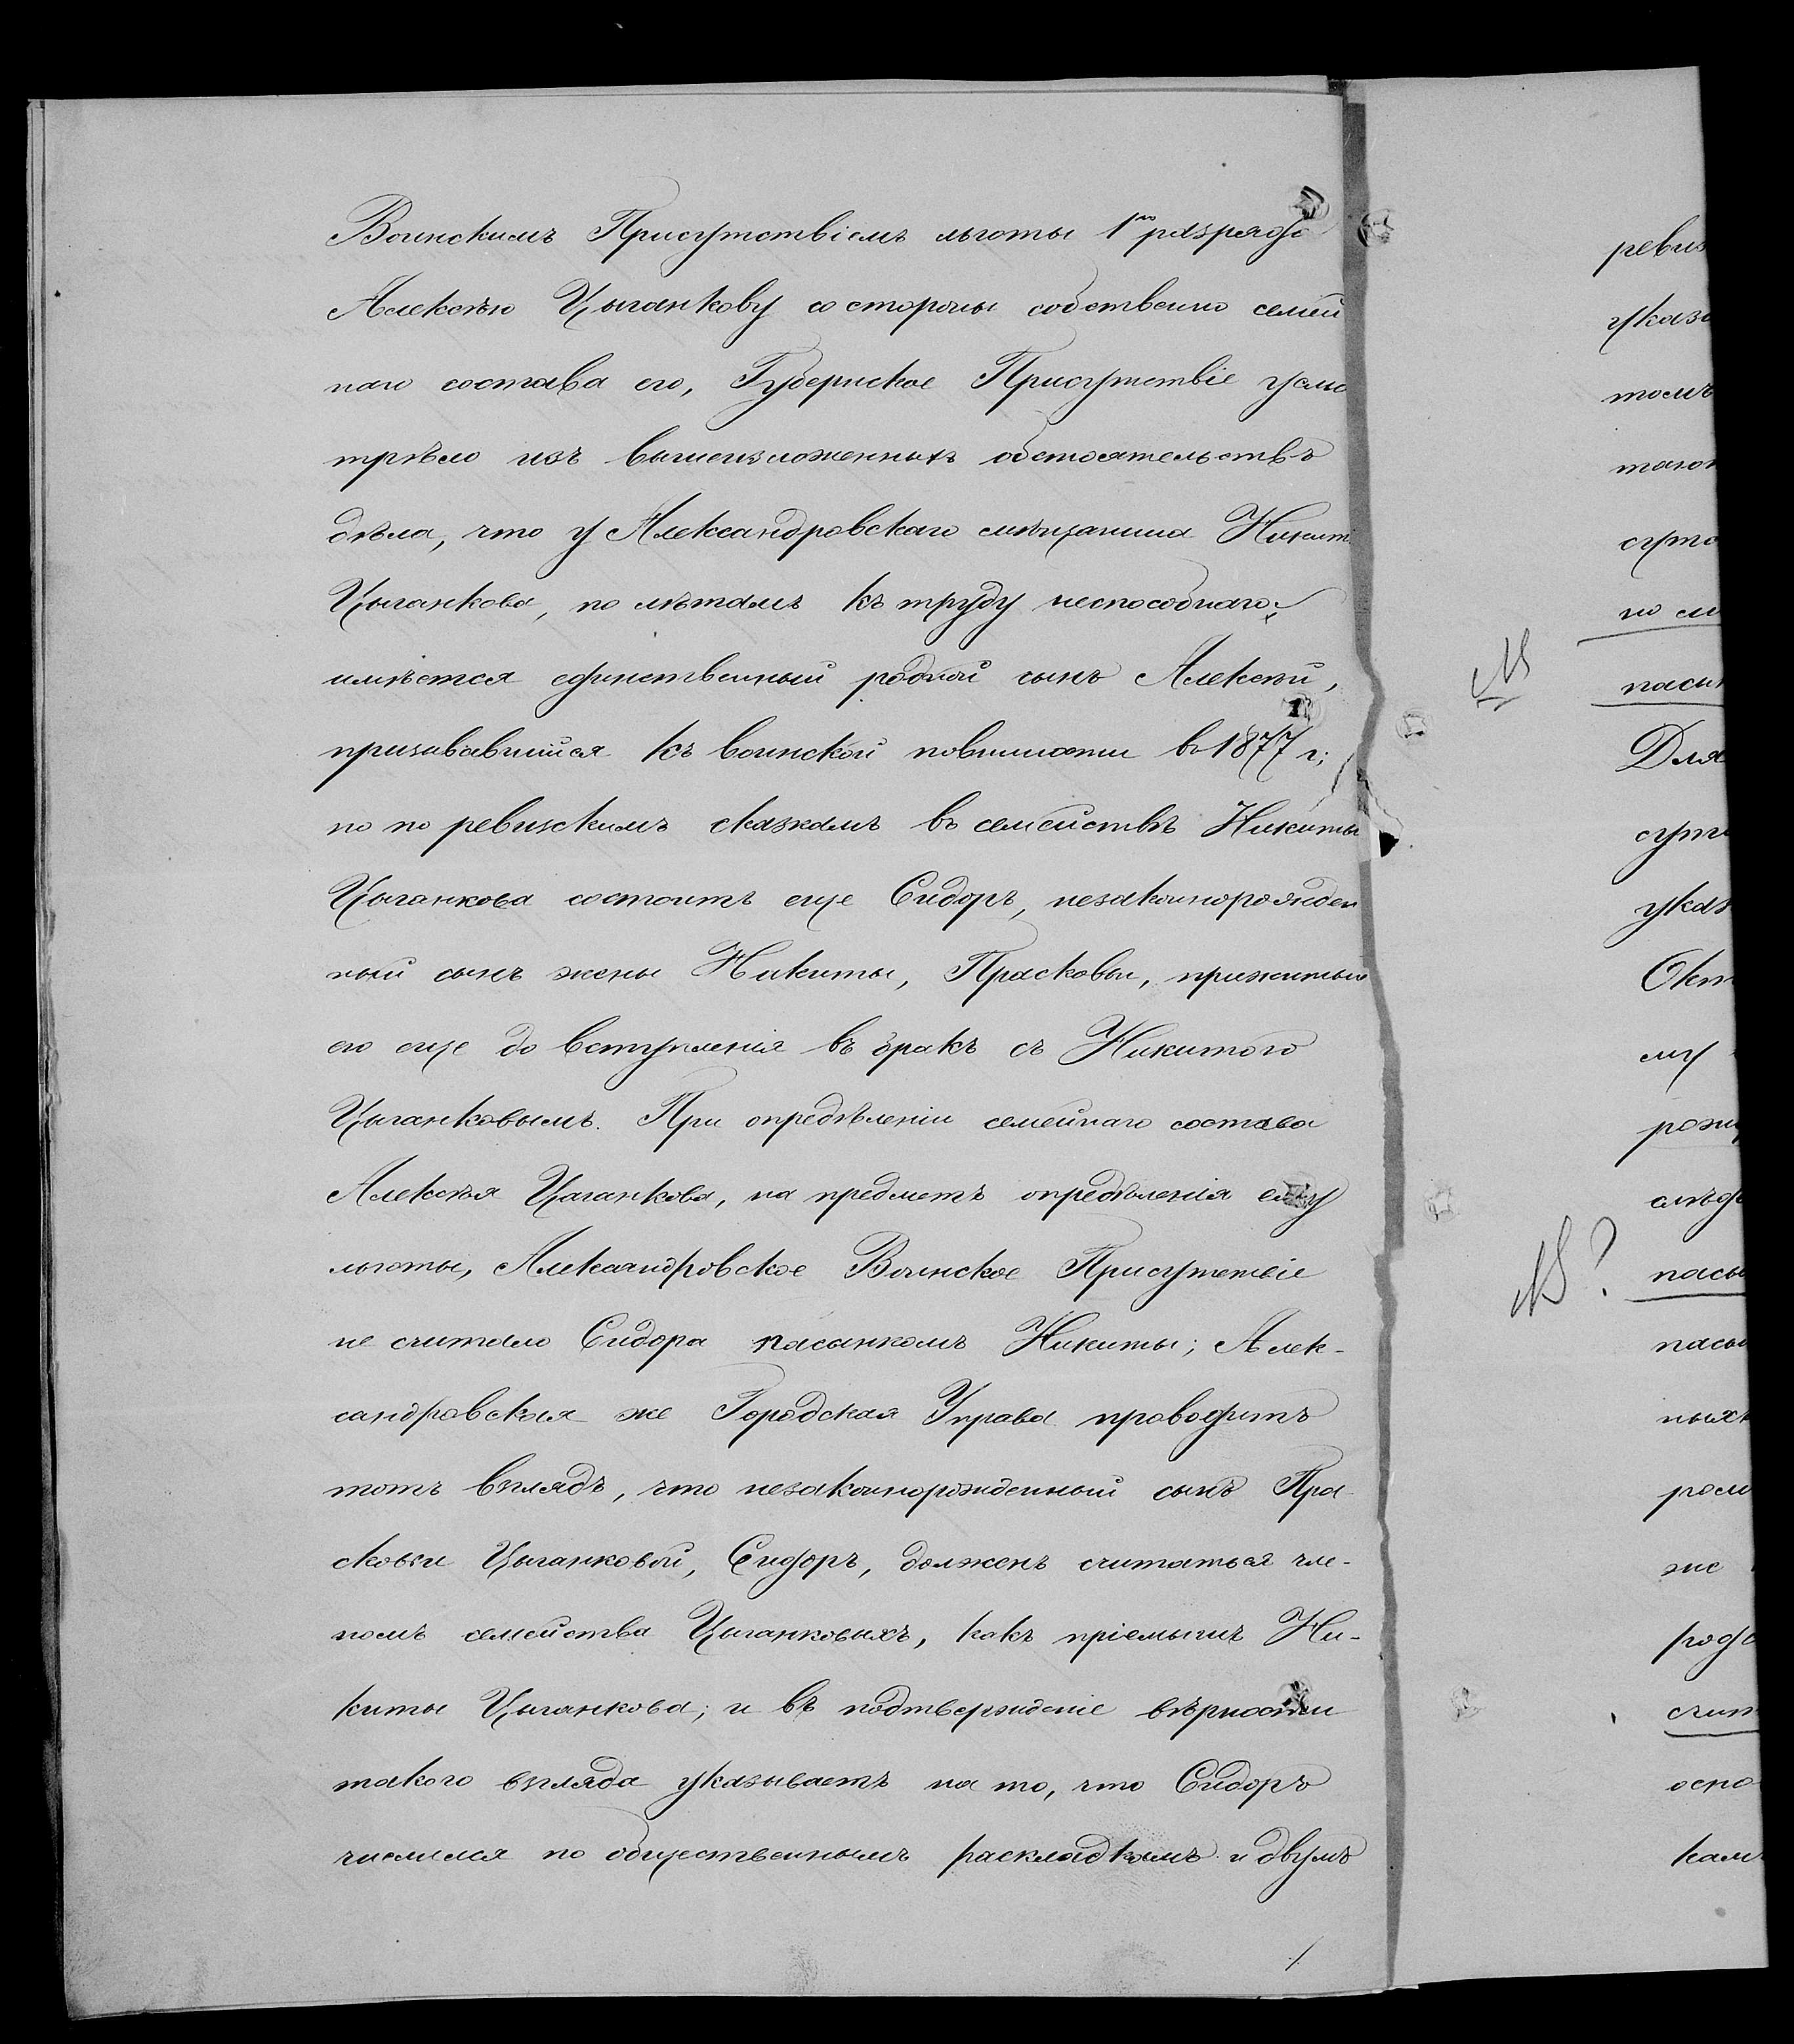 Воинскимъ Присутствіемъ льготы 1го разряда
Алексѣю Цыганкову со стороны собственно семей
наго состава его, Губернское Присутствіе усмо
трѣло изъ вышеизложенныхъ обстоятельствъ
дѣла, что у Александровскаго мѣщанина Никит
Цыганкова, по лѣтамъ къ труду неспособнаго,
имѣется единственный родной сынъ Алексѣй,
призывавшійся къ воинской повинности въ 1877 г;
но по ревизскимъ сказкамъ въ семействѣ Никиты
Цыганкова состоитъ еще Сидоръ, незаконорожден
ный сынъ жены Никиты, Прасковьи, прижитый
ею еще до вступленія въ бракъ съ Никитою
Цыганковымъ. При опредѣленіи семейнаго состава
Алексѣя Цыганкова, на предметъ опредѣленія ему
льготы, Александровское Воинское Присутствіе
не считало Сидора пасынкомъ Никиты; Алек-
сандровская же Городская Управа проводитъ
тотъ взглядъ, что незаконнорожденный сынъ Пра-
сковьи Цыганковой, Сидоръ, долженъ считаться чле-
номъ семейства Цыганковыхъ, какъ пріемышъ Ни-
киты Цыганкова; и въ подтвержденіе вѣрности
такого взгляда указываетъ на то, что Сидоръ
числился по общественнымъ раскладкамъ и двумъ
ревиз
указа
томъ
сутс
по
NB
пасын
Для
сутс
указ
Окт
му
рожд
NB?
пасы
пасы
ныхъ
же
родс
счит
осно
кам